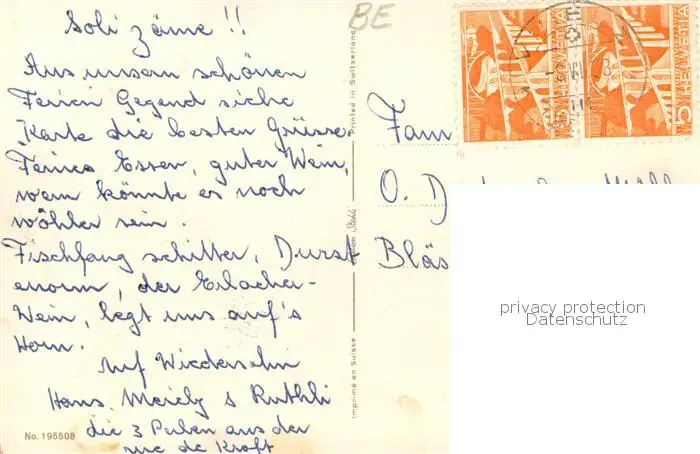 Soli zäme !!
Aus unsern schönen
Ferien Gegend siehe
Karte die besten Grüsse.
Feines Essen, guter Wein,
wem könnte es noch
wöhler sein.
Fischfang schitter, Durst
enorm, der Erlacher-
Wein, legt uns auf's
Horn.
Auf Wiedersehn
Hans, & Ruthli
die 3 aus der
rue de Kroft
No. 195508
BE
Printed in Switzerland
Imprimé en Suisse
HELVETIA
5
HELVETIA
5
Fam
O. D
Bläs
privacy protection
Datenschutz